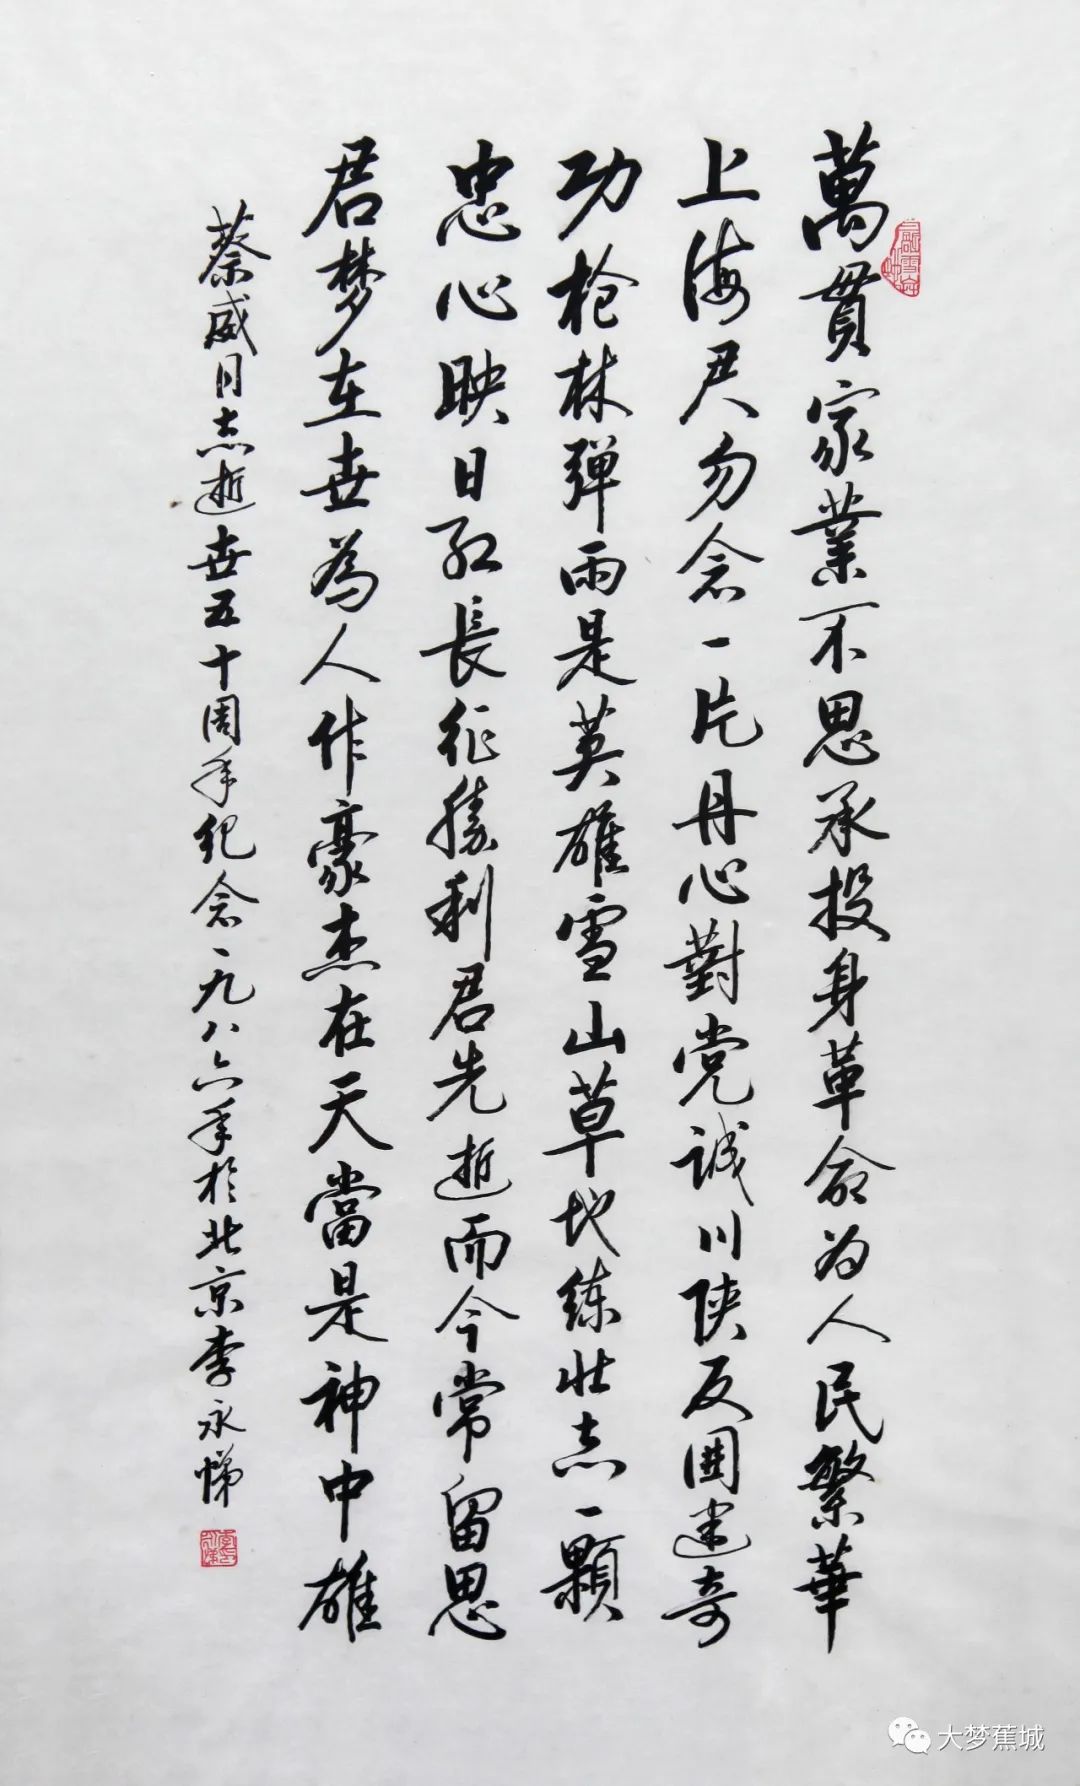 萬貫家業不思承投身革命为人民繁華
上海勿念一片丹心對党誠川陕反围建奇
功枪林弹雨是英雄雪山草地练壮志一顆
忠心映日红長征勝利君先逝而今常留思
君梦在世為人作豪杰在天當是神中雄
蔡威同志逝世五十周年纪念一九八六年於北京李永悌
大梦蕉城